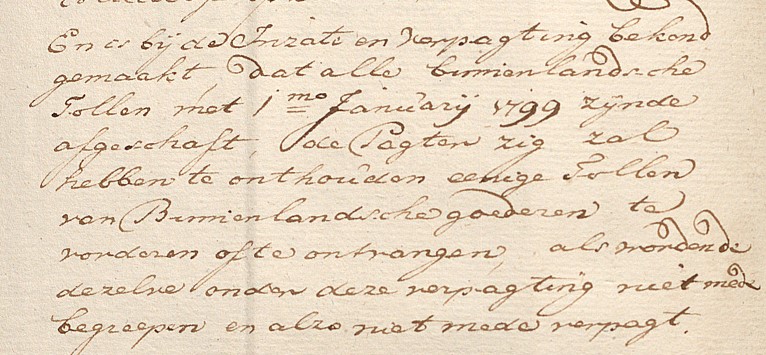 En is bij de Inzate en verpagting bekend
gemaakt, dat alle binnenlandsche
Tollen met 1mo January 1799 zynde
afgeschaft, de Pagter zig zal
hebben te onthouden eenige Tollen
van Binnenlandsche goederen te
vorderen ofte ontvangen, als wordende
dezelve onder deze verpagting niet mede
begreepen en alzo niet mede verpagt.